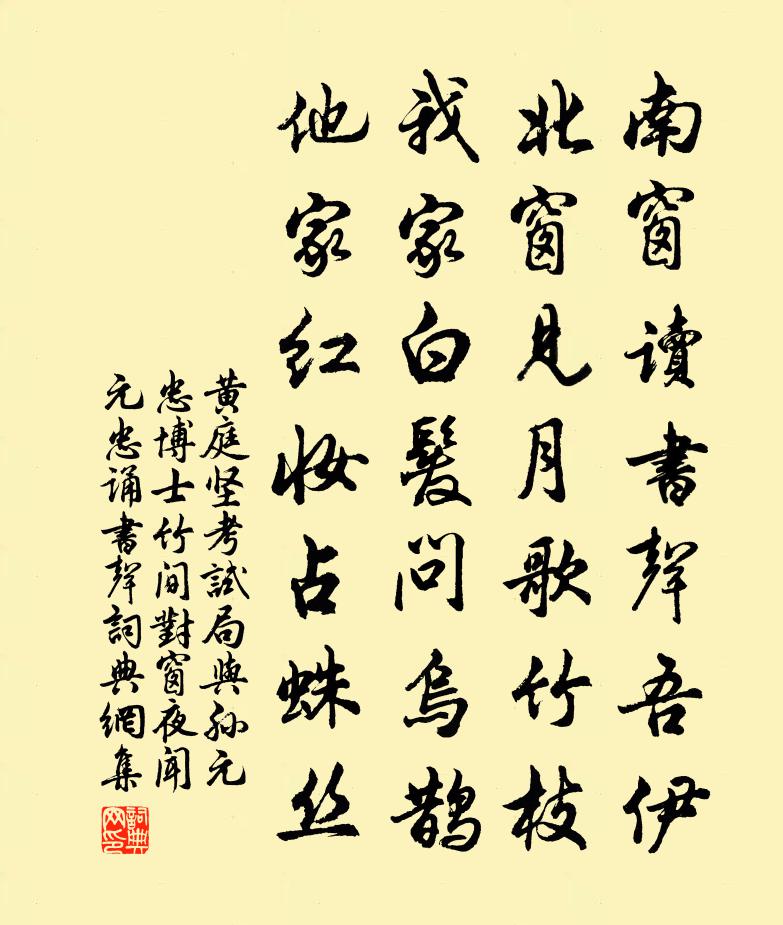 南窗讀書聲吾伊
北窗見月歌竹枝
我家白髮問烏鵲
他家红妆占蛛丝
黄庭坚考試局與孙元
忠博士竹间對窗夜闻
元忠诵書聲詞典網集
詞典
网印